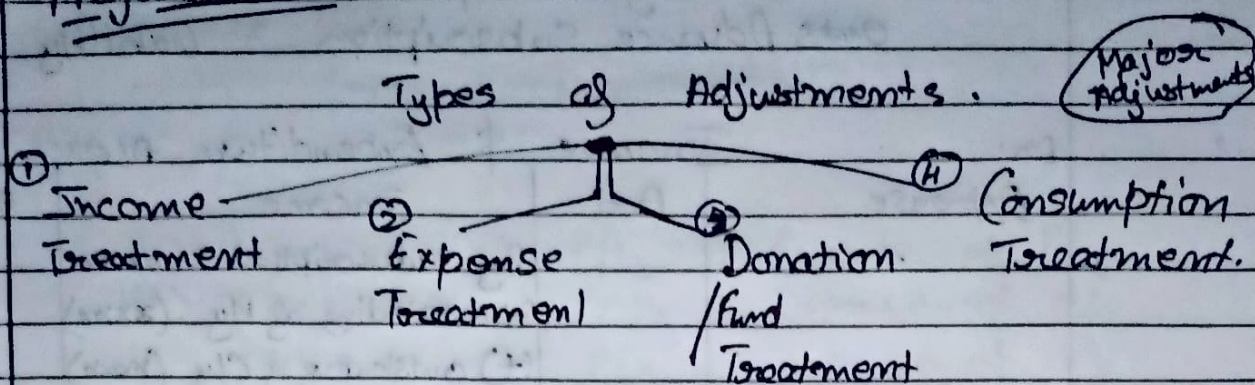 Types of Adjustments.
Major
Adjustments
① Income
Treatment
② Expense
Treatment
③ Donation
/Fund
Treatment
④ Consumption
Treatment.